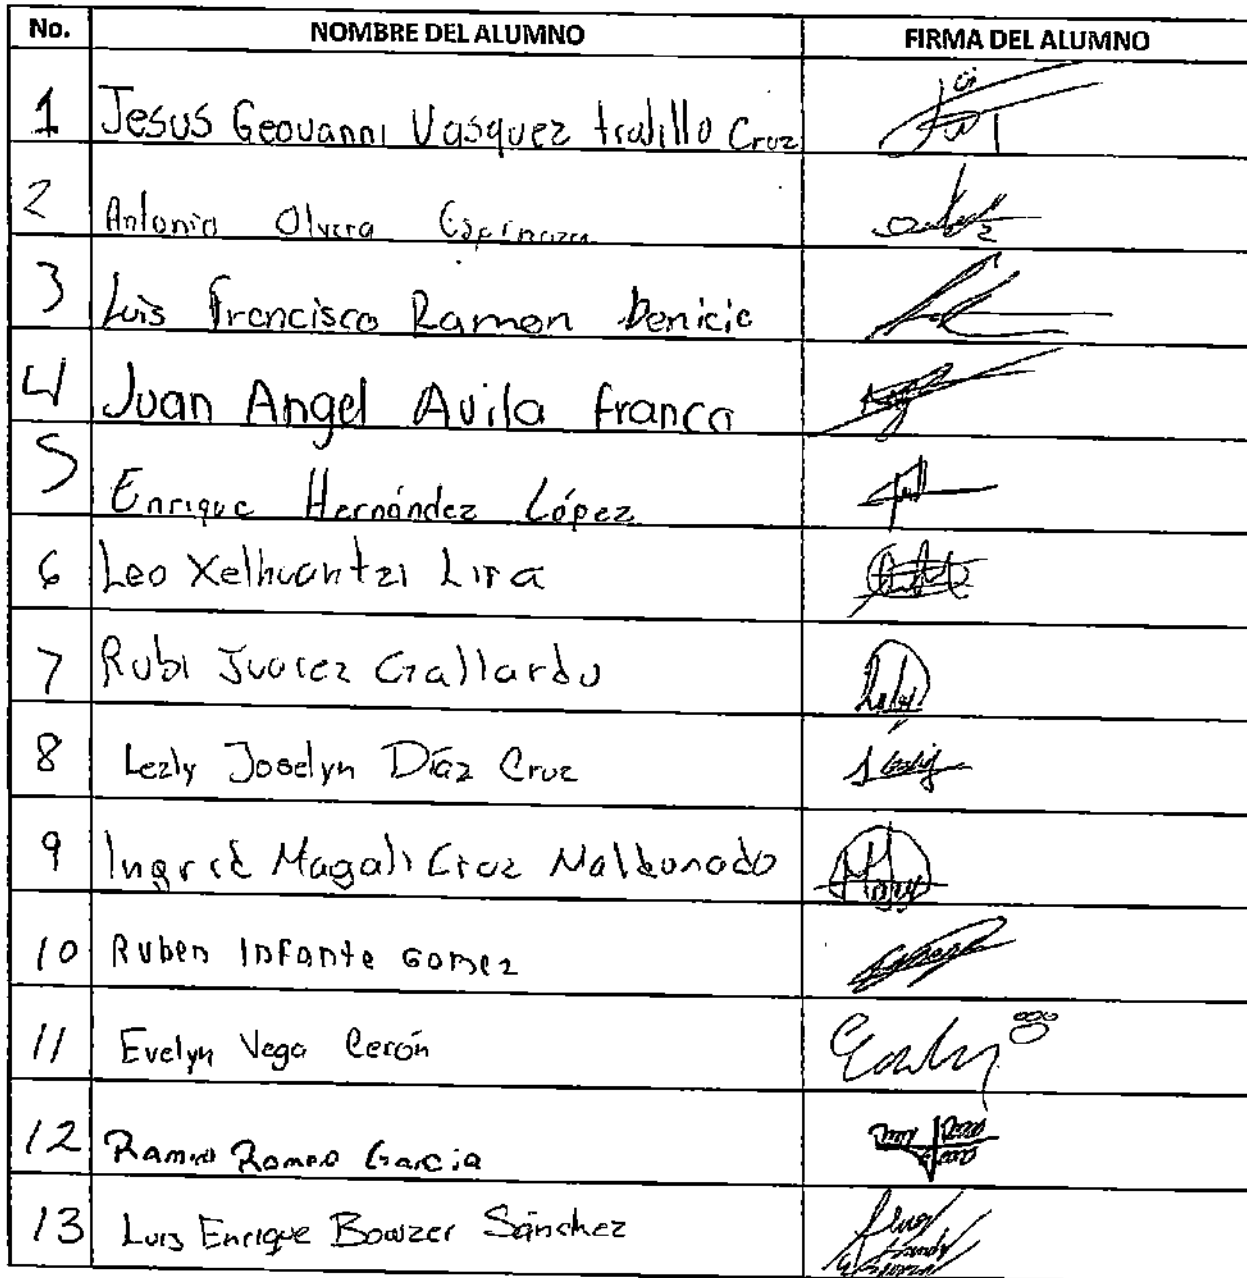 No. NOMBRE DEL ALUMNO FIRMA DEL ALUMNO
1 Jesus Geovanni Vasquez trujillo Cruz
2 Antonio Olvera Espinoza
3 Luis Francisco Ramon Denicio
4 Juan Angel Avila franco
5 Enrique Hernández López
6 Leo Xelhuantzi Lira
7 Rubi Juarez Gallardo
8 Lezly Joselyn Díaz Cruz
9 Ingrid Magali Cruz Maldonado
10 Ruben Infante Gomez
11 Evelyn Vega Cerón
12 Ramiro Romero Garcia
13 Luis Enrique Bowzer Sánchez